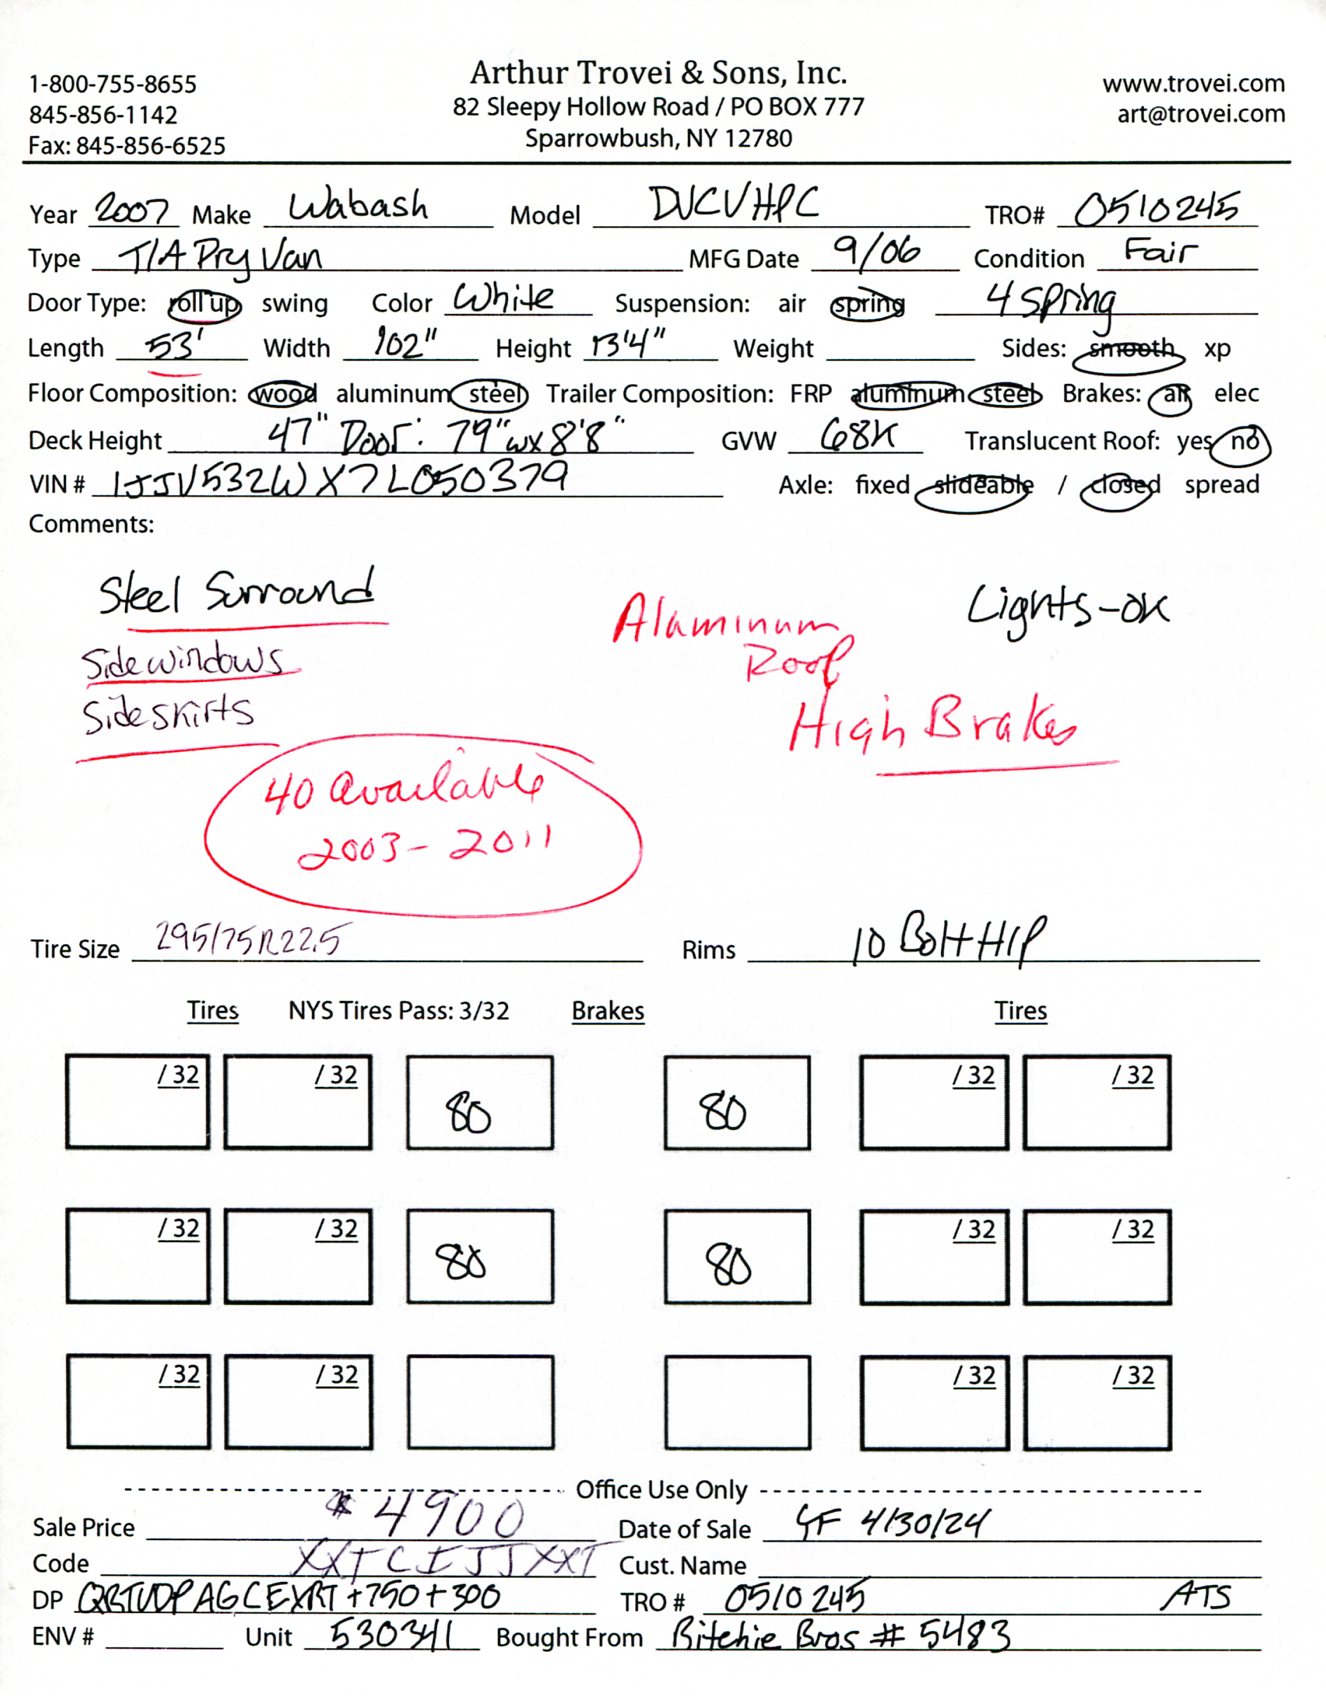 1-800-755-8655
845-856-1142
Fax: 845-856-6525
Arthur Trovei & Sons, Inc.
82 Sleepy Hollow Road / PO BOX 777
Sparrowbush, NY 12780
www.trovei.com
art@trovei.com
Year 2007 Make Wabash Model DVCVHPC TRO# 0510245
Type T/A Dry Van MFG Date 9/06 Condition Fair
Door Type: roll up swing Color White Suspension: air spring 4 Spring
Length 53' Width 102" Height 13'4" Weight Sides: smooth xp
Floor Composition: wood aluminum steel Trailer Composition: FRP aluminum steel Brakes: air elec
Deck Height 47" Door: 79"w x 8'8" GVW 68K Translucent Roof: yes no
VIN # 1JJV532WX7L050379 Axle: fixed slideable / closed spread
Comments:
Steel Surround
Side windows
Side skirts
Aluminum
Roof
Lights-OK
High Brakes
40 Available
2003-2011
Tire Size 295/75R22.5 Rims 10 Bolt H/P
Tires NYS Tires Pass: 3/32 Brakes Tires
/ 32 / 32 80 80 / 32 / 32
/ 32 / 32 80 80 / 32 / 32
/ 32 / 32 / 32 / 32
Office Use Only
Sale Price $4900 Date of Sale GF 4/30/24
Code XXTCIJJXXT Cust. Name
DP +750+300 TRO # 0510245 ATS
ENV # Unit 530341 Bought From Ritchie Bros # 5483